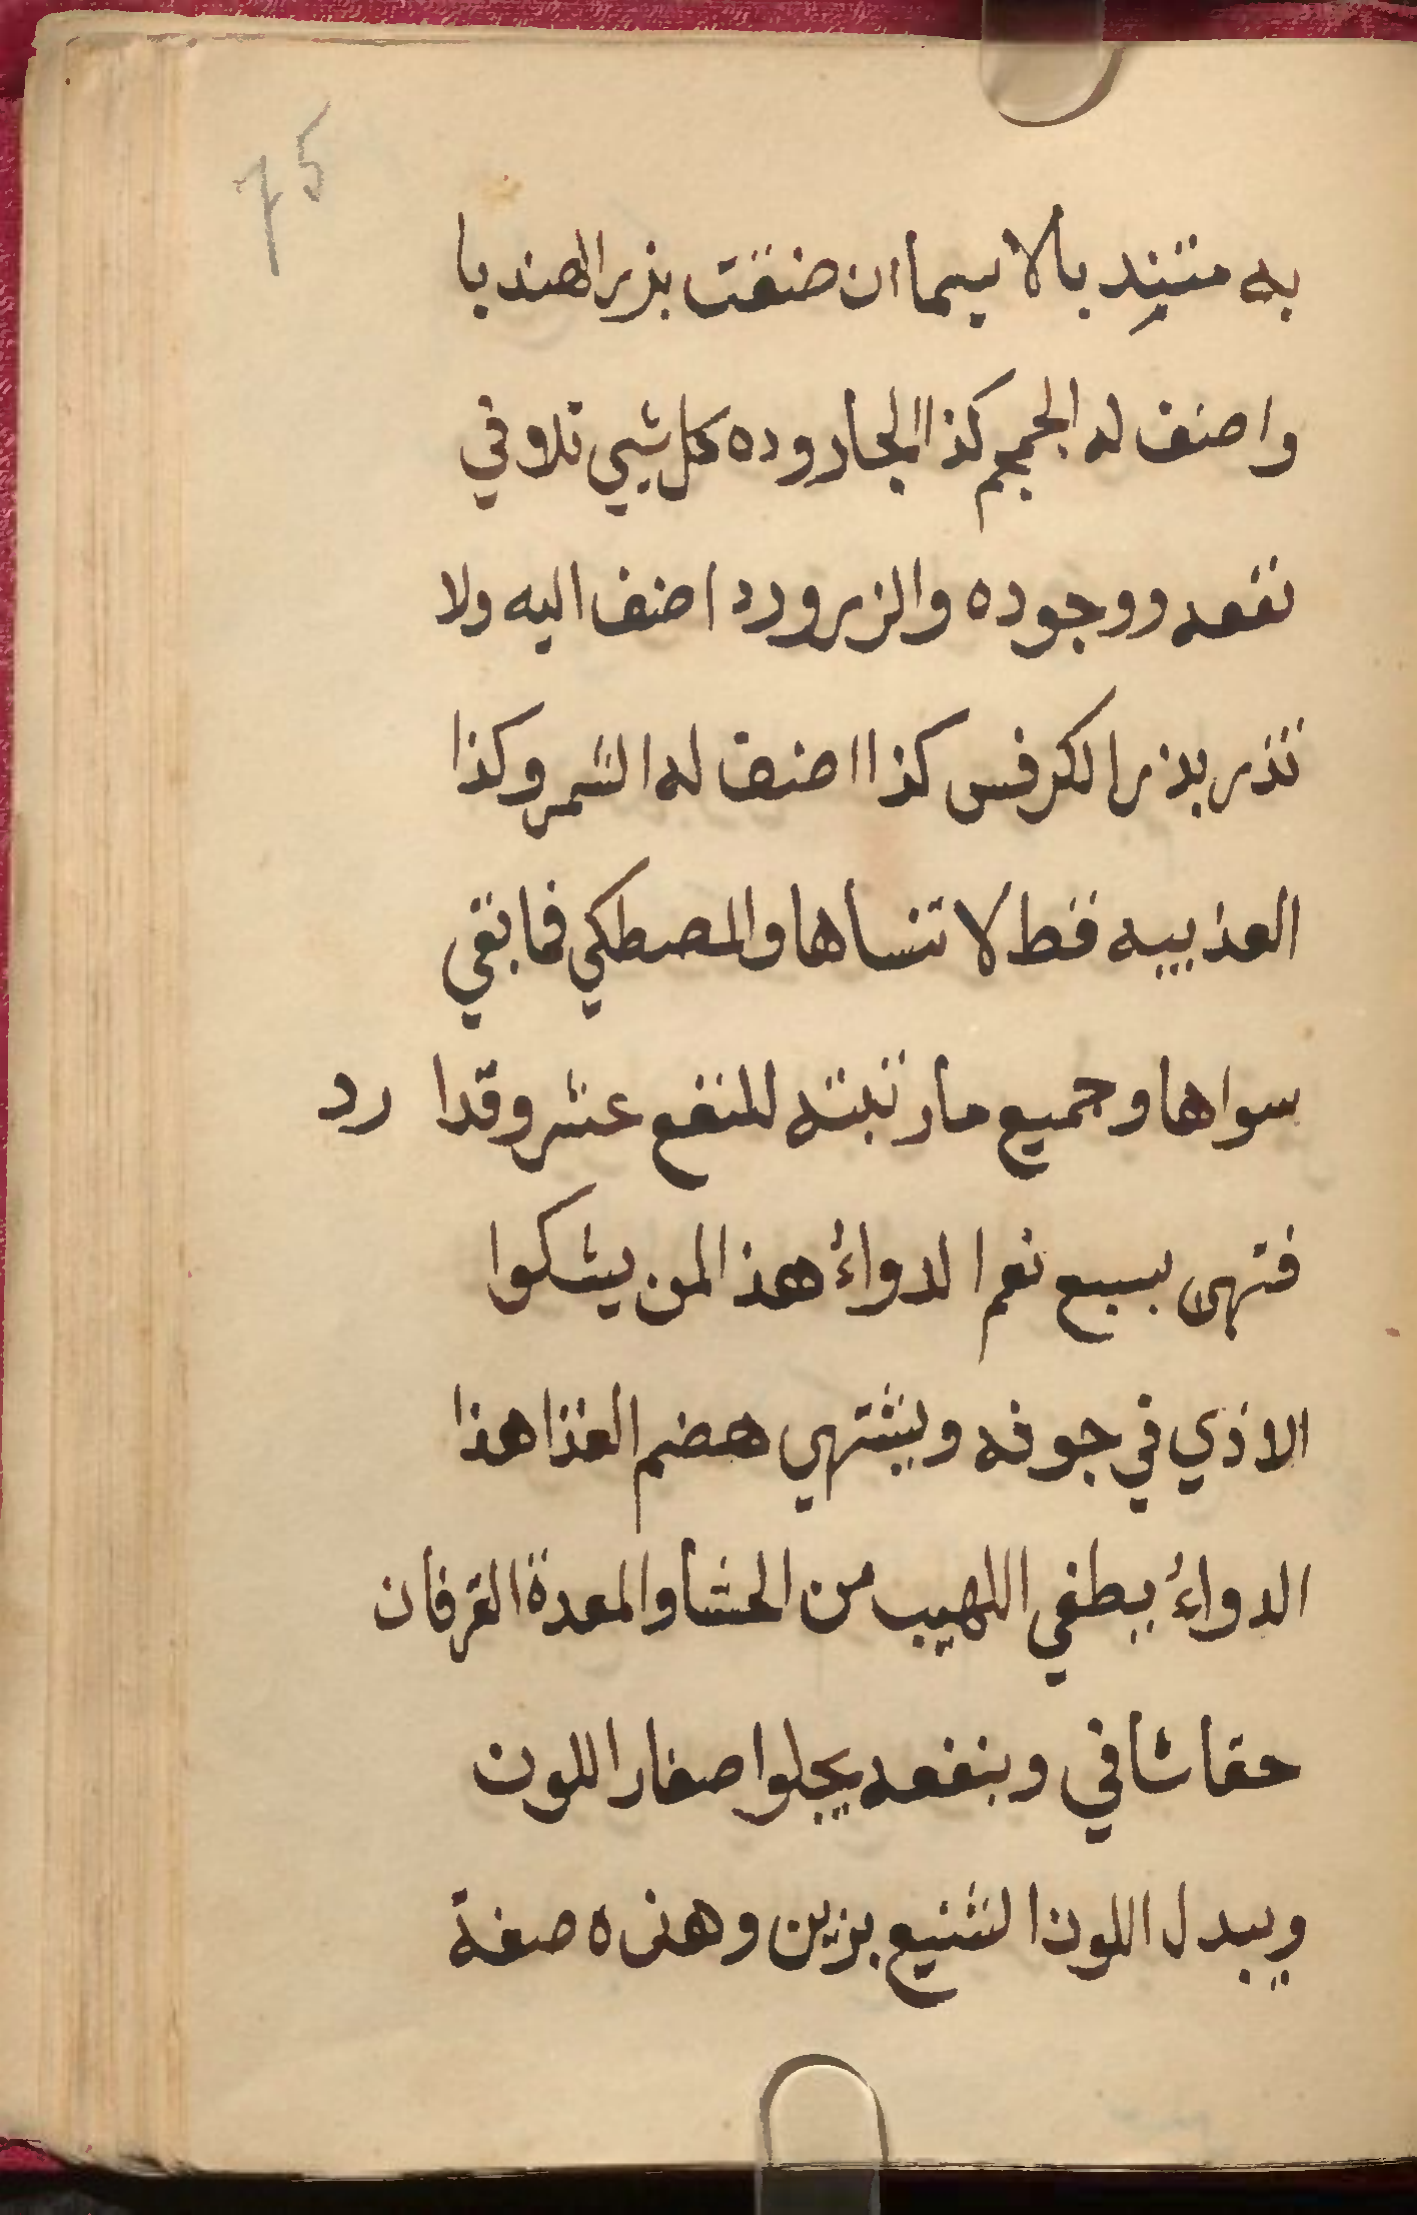 75
به متنيد بالا سيما ان ضنفت بذر الهندبا
واضنف له الجمجم كذا الجاروده كل شي تلاقي
نفعه ووجوده والزرورد اضف اليه ولا
تذر بذر الكرفس كذا اضنف له الشمر وكذا
العذبيه فقط لا تنساها والمصطكي فما بقي
سواها وجميع ما رتبته للنفع عشر وقدا رد
فتهى بسبع نعم الدواءُ هذا لمن يشكوا
الاذي في جوفه ويشتهي هضم الغذا هذا
الدواءُ يطفي اللهيب من الحشا والمعدة القرفان
حقا شافي وبنفعه يجلوا صفار اللون
ويبدل اللون الشنيع بزين وهذه صفة